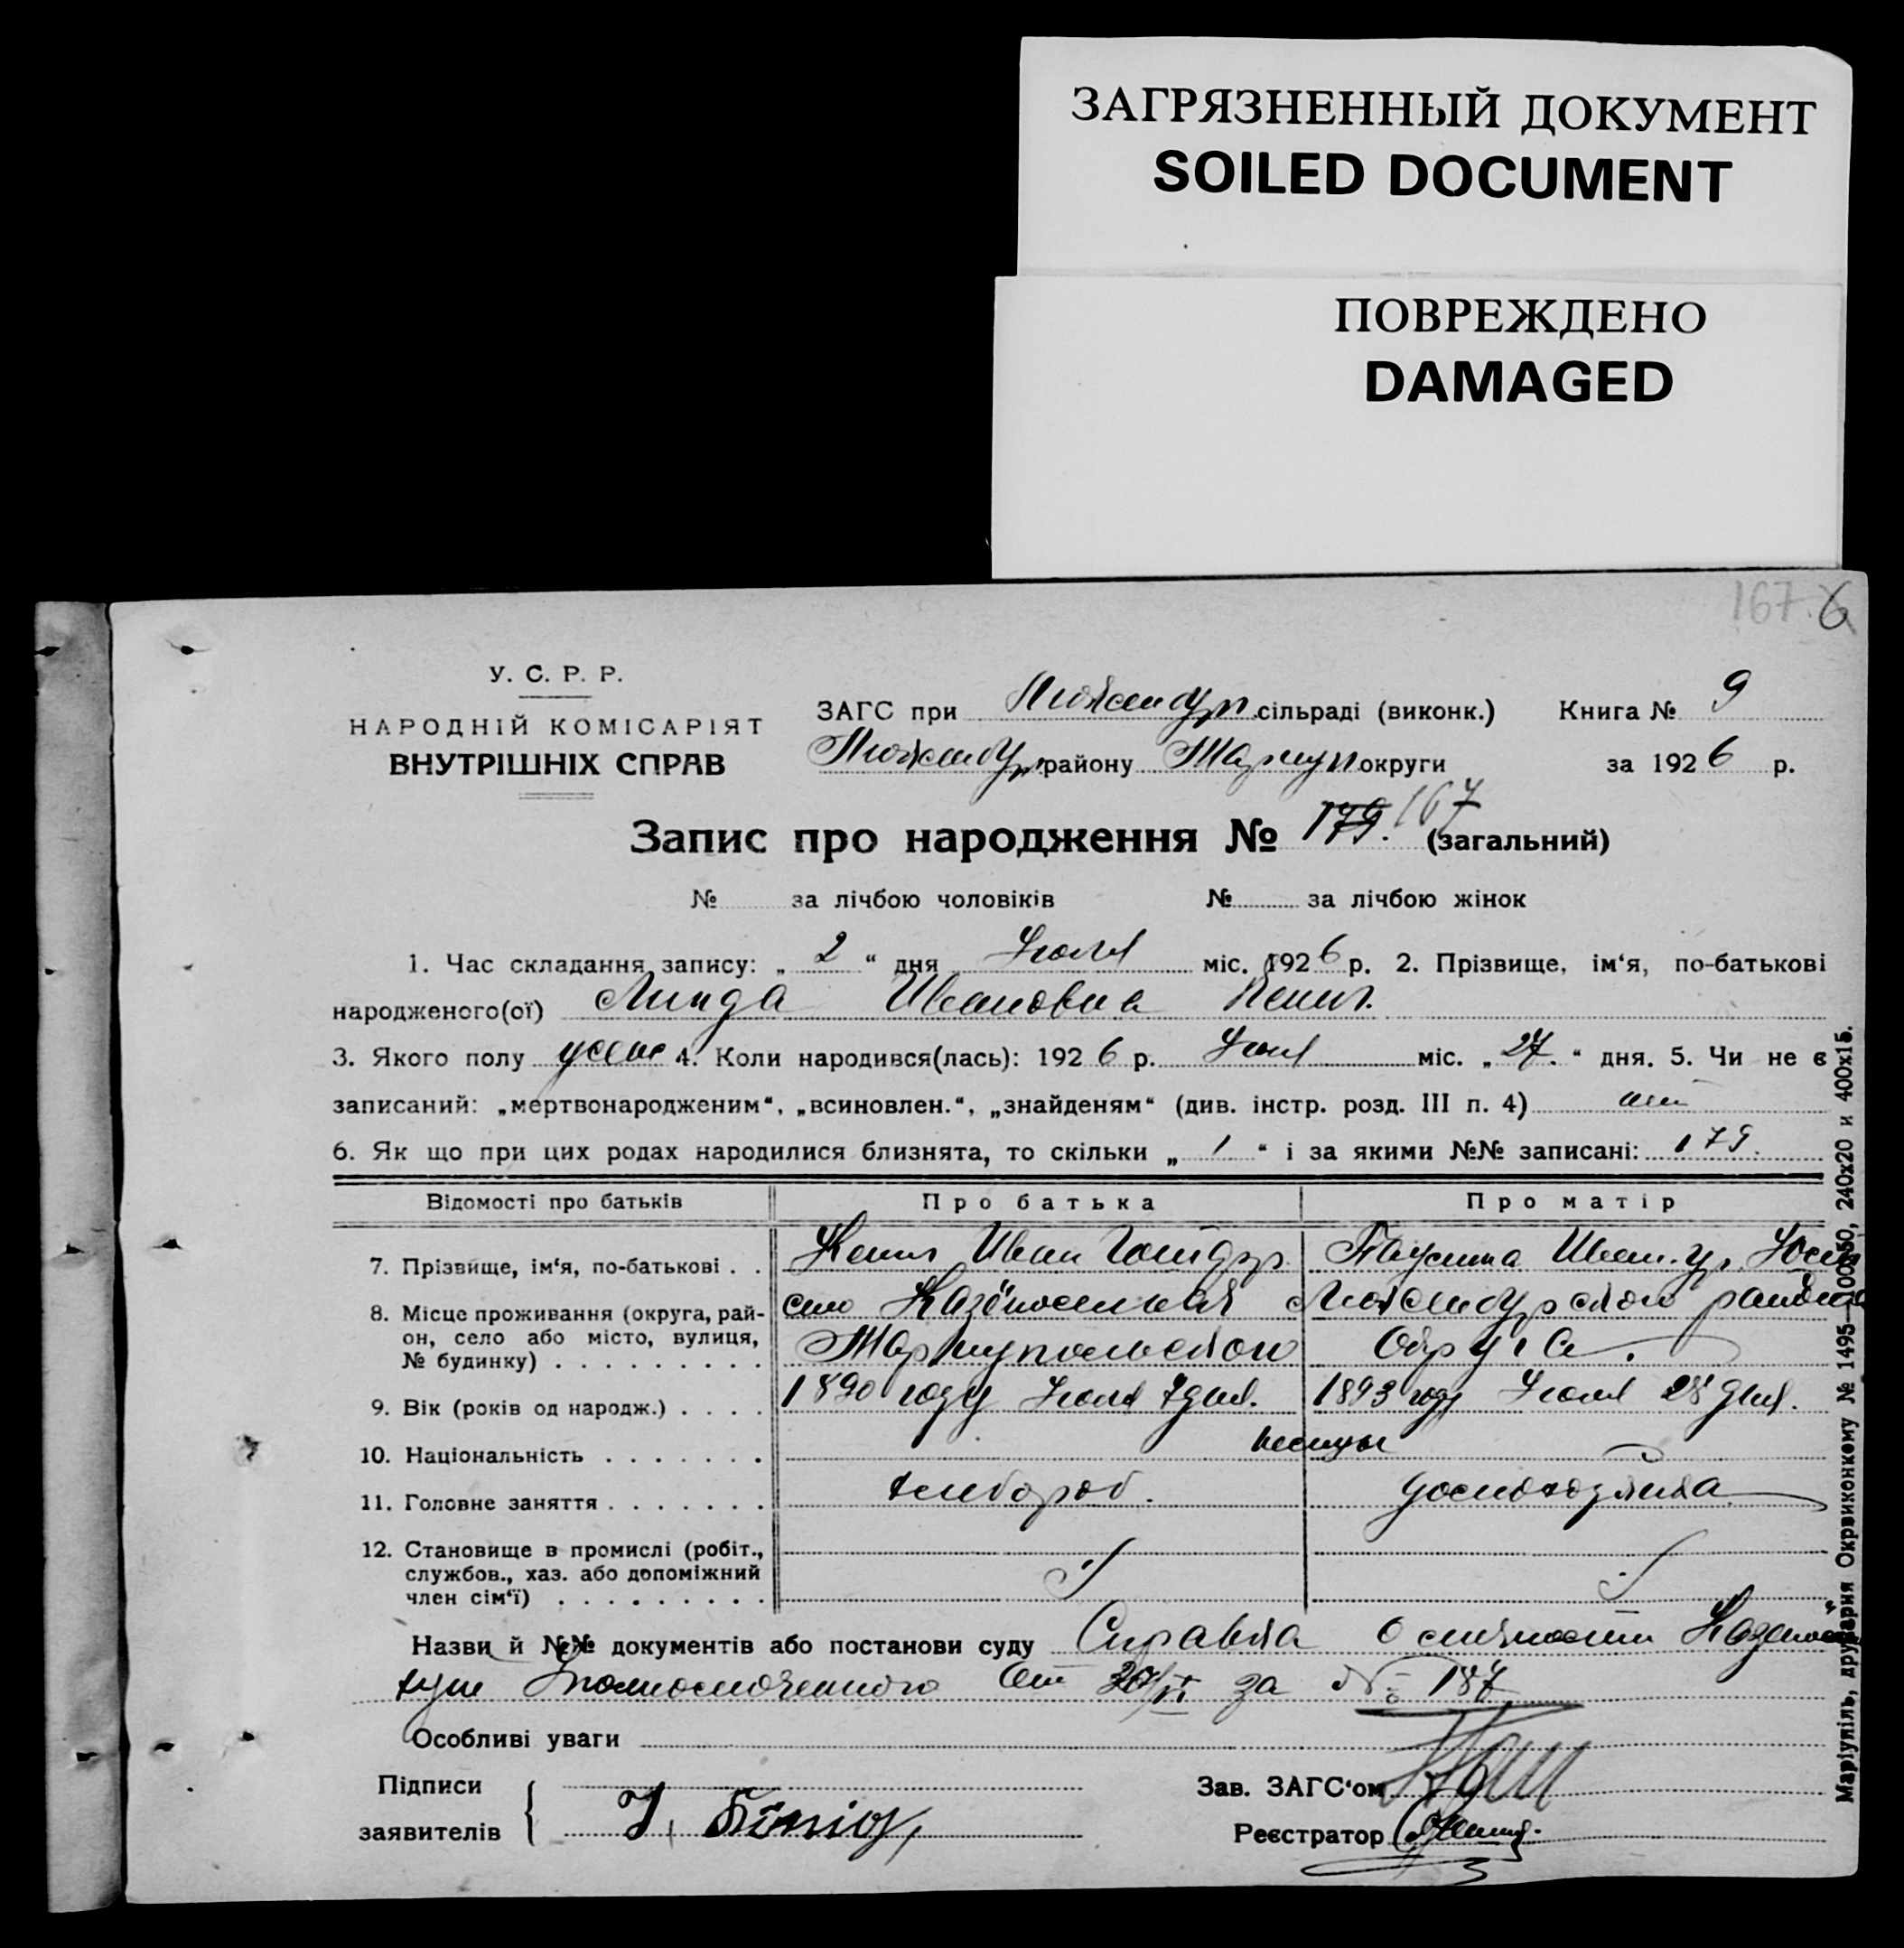 ЗАГРЯЗНЕННЫЙ ДОКУМЕНТ
SOILED DOCUMENT
ПОВРЕЖДЕНО
DAMAGED
167. 6
У. С. Р. Р.
НАРОДНІЙ КОМІСАРІЯТ
ВНУТРІШНІХ СПРАВ
ЗАГС при Люксембур. сільраді (виконк.) Книга № 9
Люксембур. району Мариуп округи за 1926 р.
Запис про народження № 179. 167 (загальний)
№ за лічбою чоловіків № за лічбою жінок
1. Час складання запису: „ 2 “ дня Июля міс. 1926 р. 2. Прізвище, ім‘я, по-батькові
народженого(ої) Линда Ивановна Кениг.
3. Якого полу 4. Коли народився(лась): 1926 р. міс. „ 27. “ дня. 5. Чи не є
записаний: „мертвонародженим“, „всиновлен.“, „знайденям“ (див. інстр. розд. III п. 4)
6. Як що при цих родах народилися близнята, то скільки „ 1 “ і за якими №№ записані: 179.
Відомості про батьків Про батька Про матір
7. Прізвище, ім‘я, по-батькові . . Кениг Иван
8. Місце проживання (округа, рай-
он, село або місто, вулиця,
№ будинку) . . . . . . . . .
село Люксембурского района
Мариупольского Округа.
9. Вік (років од народж.) . . . . 1890 году Июля 7 дня. 1893 году 28 дня.
10. Національність . . . . . . . немцы
11. Головне заняття . . . . . . . хлебороб. домоходзяйка
12. Становище в промислі (робіт.,
службов., хаз. або допоміжний
член сім‘ї) . . . . . . . . .
Назви й №№ документів або постанови суду Справка о личности
Уполномоченного от за № 187
Особливі уваги
Підписи
заявителів
J. König,
Зав. ЗАГС‘ом
Реєстратор
Маріупіль, друкарня Окрвиконкому № 1495—100х50, 240х20 и 400х15.